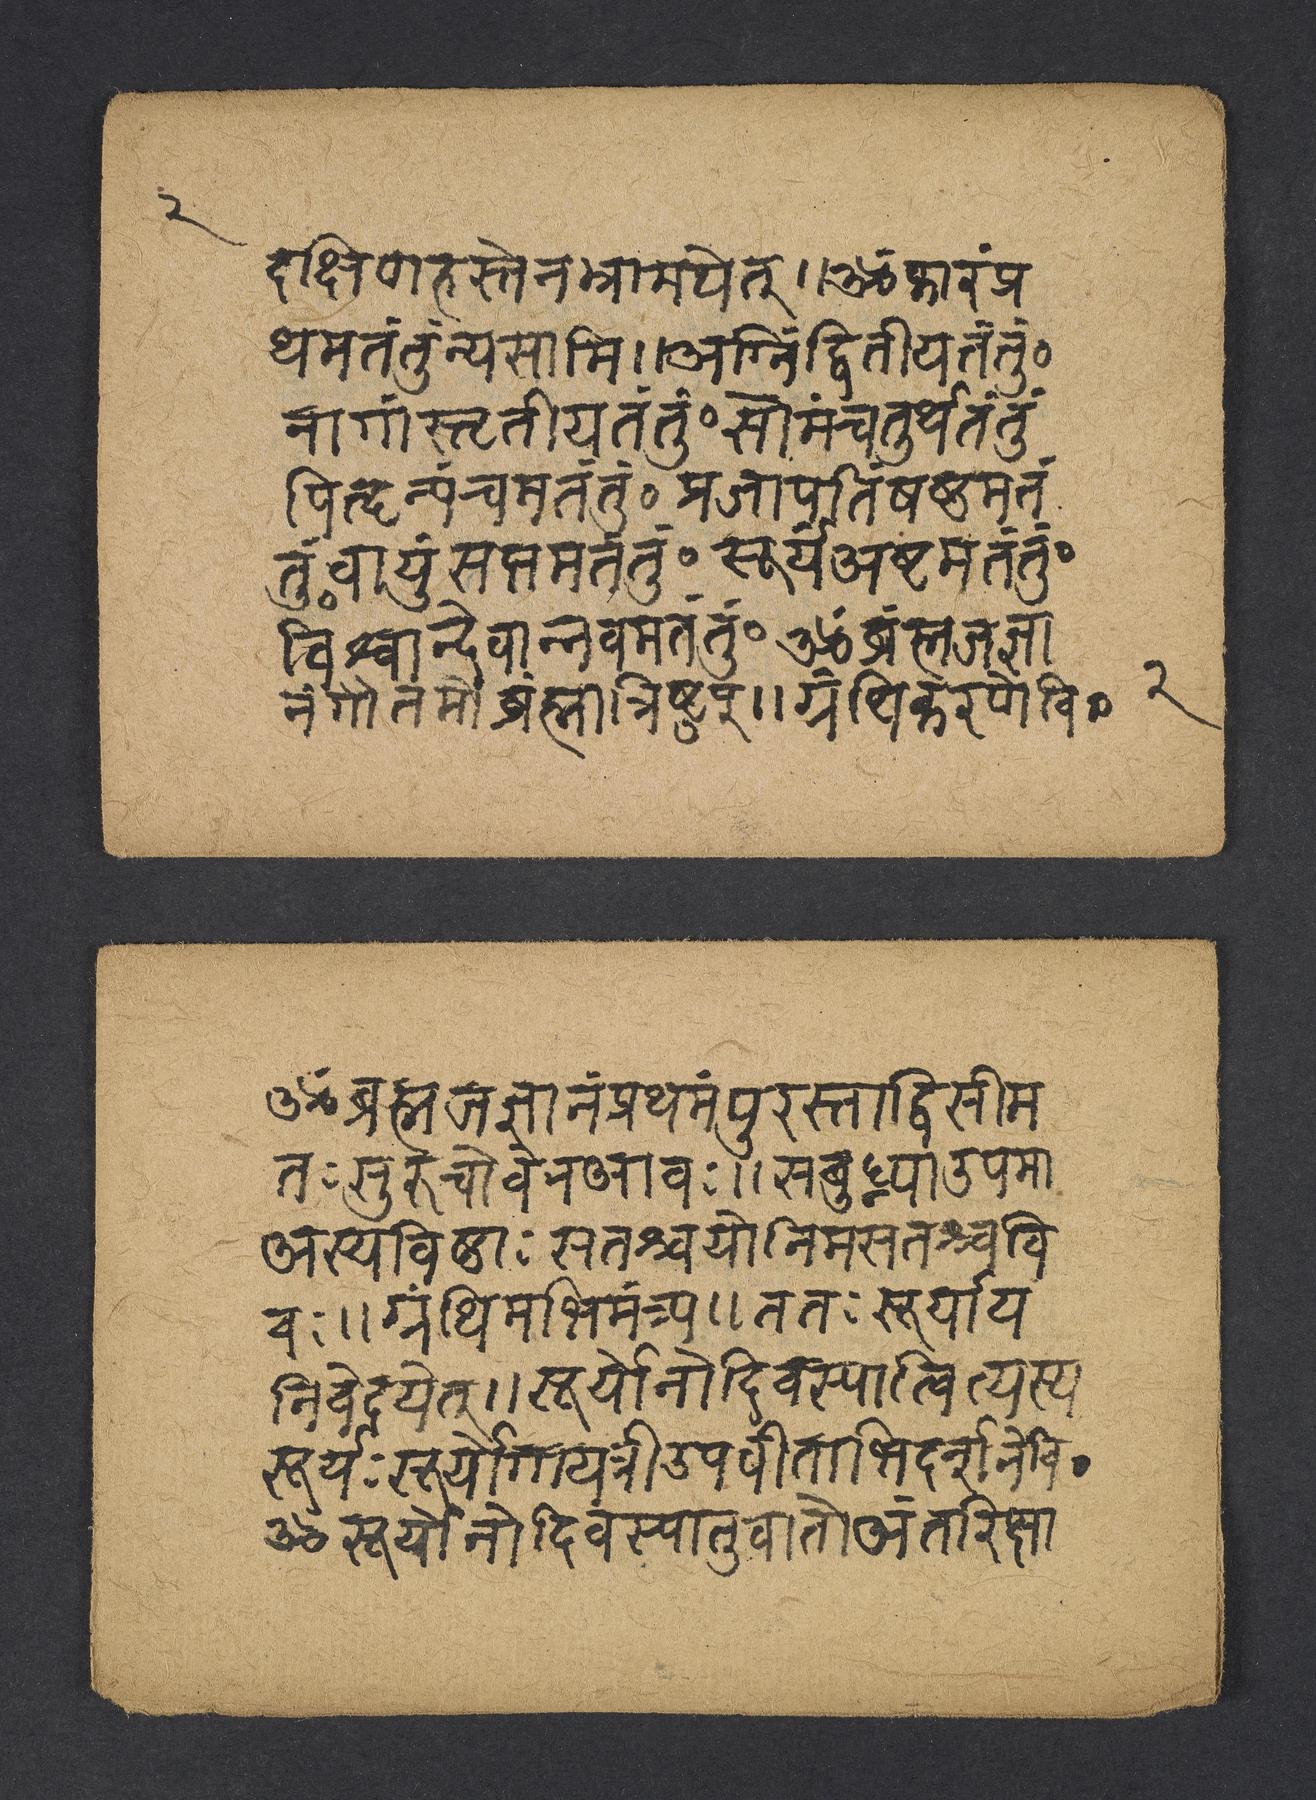 २
दक्षिणहस्तेनभ्रामयेत्॥ॐकारंप्र
थमतंतुंन्यसामि॥अग्निंद्वितीयतंतुं॰
नागांस्तृतीयतंतुं॰सोमंचतुर्थतंतुं
पितॄन्पंचमतंतुं॰प्रजापतिंषष्ठमतं
तुं॰वायुंसप्तमतंतुं॰सूर्यंअष्टमतंतुं॰
विश्वान्देवान्नवमतंतुं॰ॐब्रंह्मजज्ञा
नंगौतमोब्रंह्मात्रिष्टुप्॥ग्रंथिकरणेवि॰
२
ॐब्रह्मजज्ञानंप्रथमंपुरस्ताद्विसीम
तःसुरुचोवेनआवः॥सबुध्न्याउपमा
अस्यविष्ठाःसतश्चयोनिमसतश्चवि
वः॥ग्रंथिमभिमंत्र्य॥ततःसूर्याय
निवेदयेत्॥सूर्योनोदिवस्पात्वित्यस्य
सूर्यःसूर्योगायत्रीउपवीताभिदर्शनेवि॰
ॐसूर्योनोदिवस्पातुवातोअंतरिक्षा